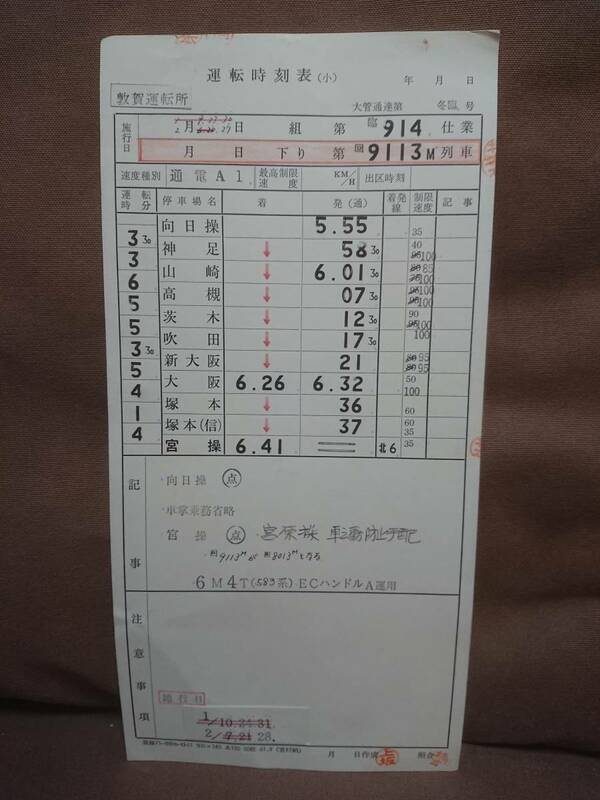 運転時刻表(小) 年 月 日
敦賀運転所 大管通達第 冬臨 号
施行日 月 日 組 第 臨 914 仕業
月 日 下り 第 回 9113M 列車
速度種別 通電A1 最高制限速度 KM/H 出区時刻
運転時分 停車場名 着 発(通) 着発線 制限速度 記事
向日操 5.55 35
3 30 神足 ↓ 58 30 40
3 山崎 ↓ 6.01 30
6 高槻 ↓ 07 30
5 茨木 ↓ 12 30 90
5 吹田 ↓ 17 30 100
3 30 新大阪 ↓ 21
5 大阪 6.26 6.32 50 100
4 塚本 ↓ 36 60
1 塚本(信) ↓ 37 60 35
4 宮操 6.41 北6 35
記事
・向日操 点
・車掌乗務省略
・宮操 点
6M4T(583系)・ECハンドルA運用
注意事項
施行日
1/10,24 31.
2/7,21 28.
月 日作成 照合